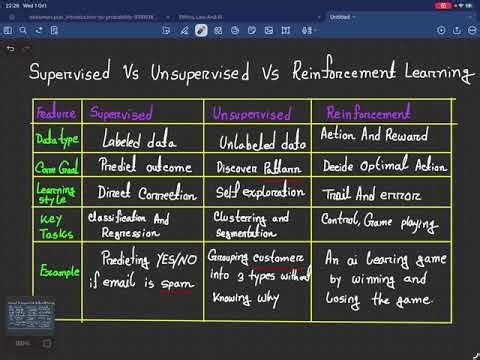 22:26 Wed 1 Oct
Ethics, Law And AI
Untitled
Supervised Vs Unsupervised Vs Reinforcement Learning
Feature Supervised Unsupervised Reinforcement
Data type Labeled data Unlabeled data Action And Reward
Core Goal Predict outcome Discover Pattarn Decide Optimal Action
Learning style Direct Correction Self exploration Trail And error
Key Tasks Classification And Regression Clustering and segmentation Control, Game playing
Example Predicting YES/NO if email is spam Grouping customer into 3 types without knowing why An ai learing game by winning and losing the game.